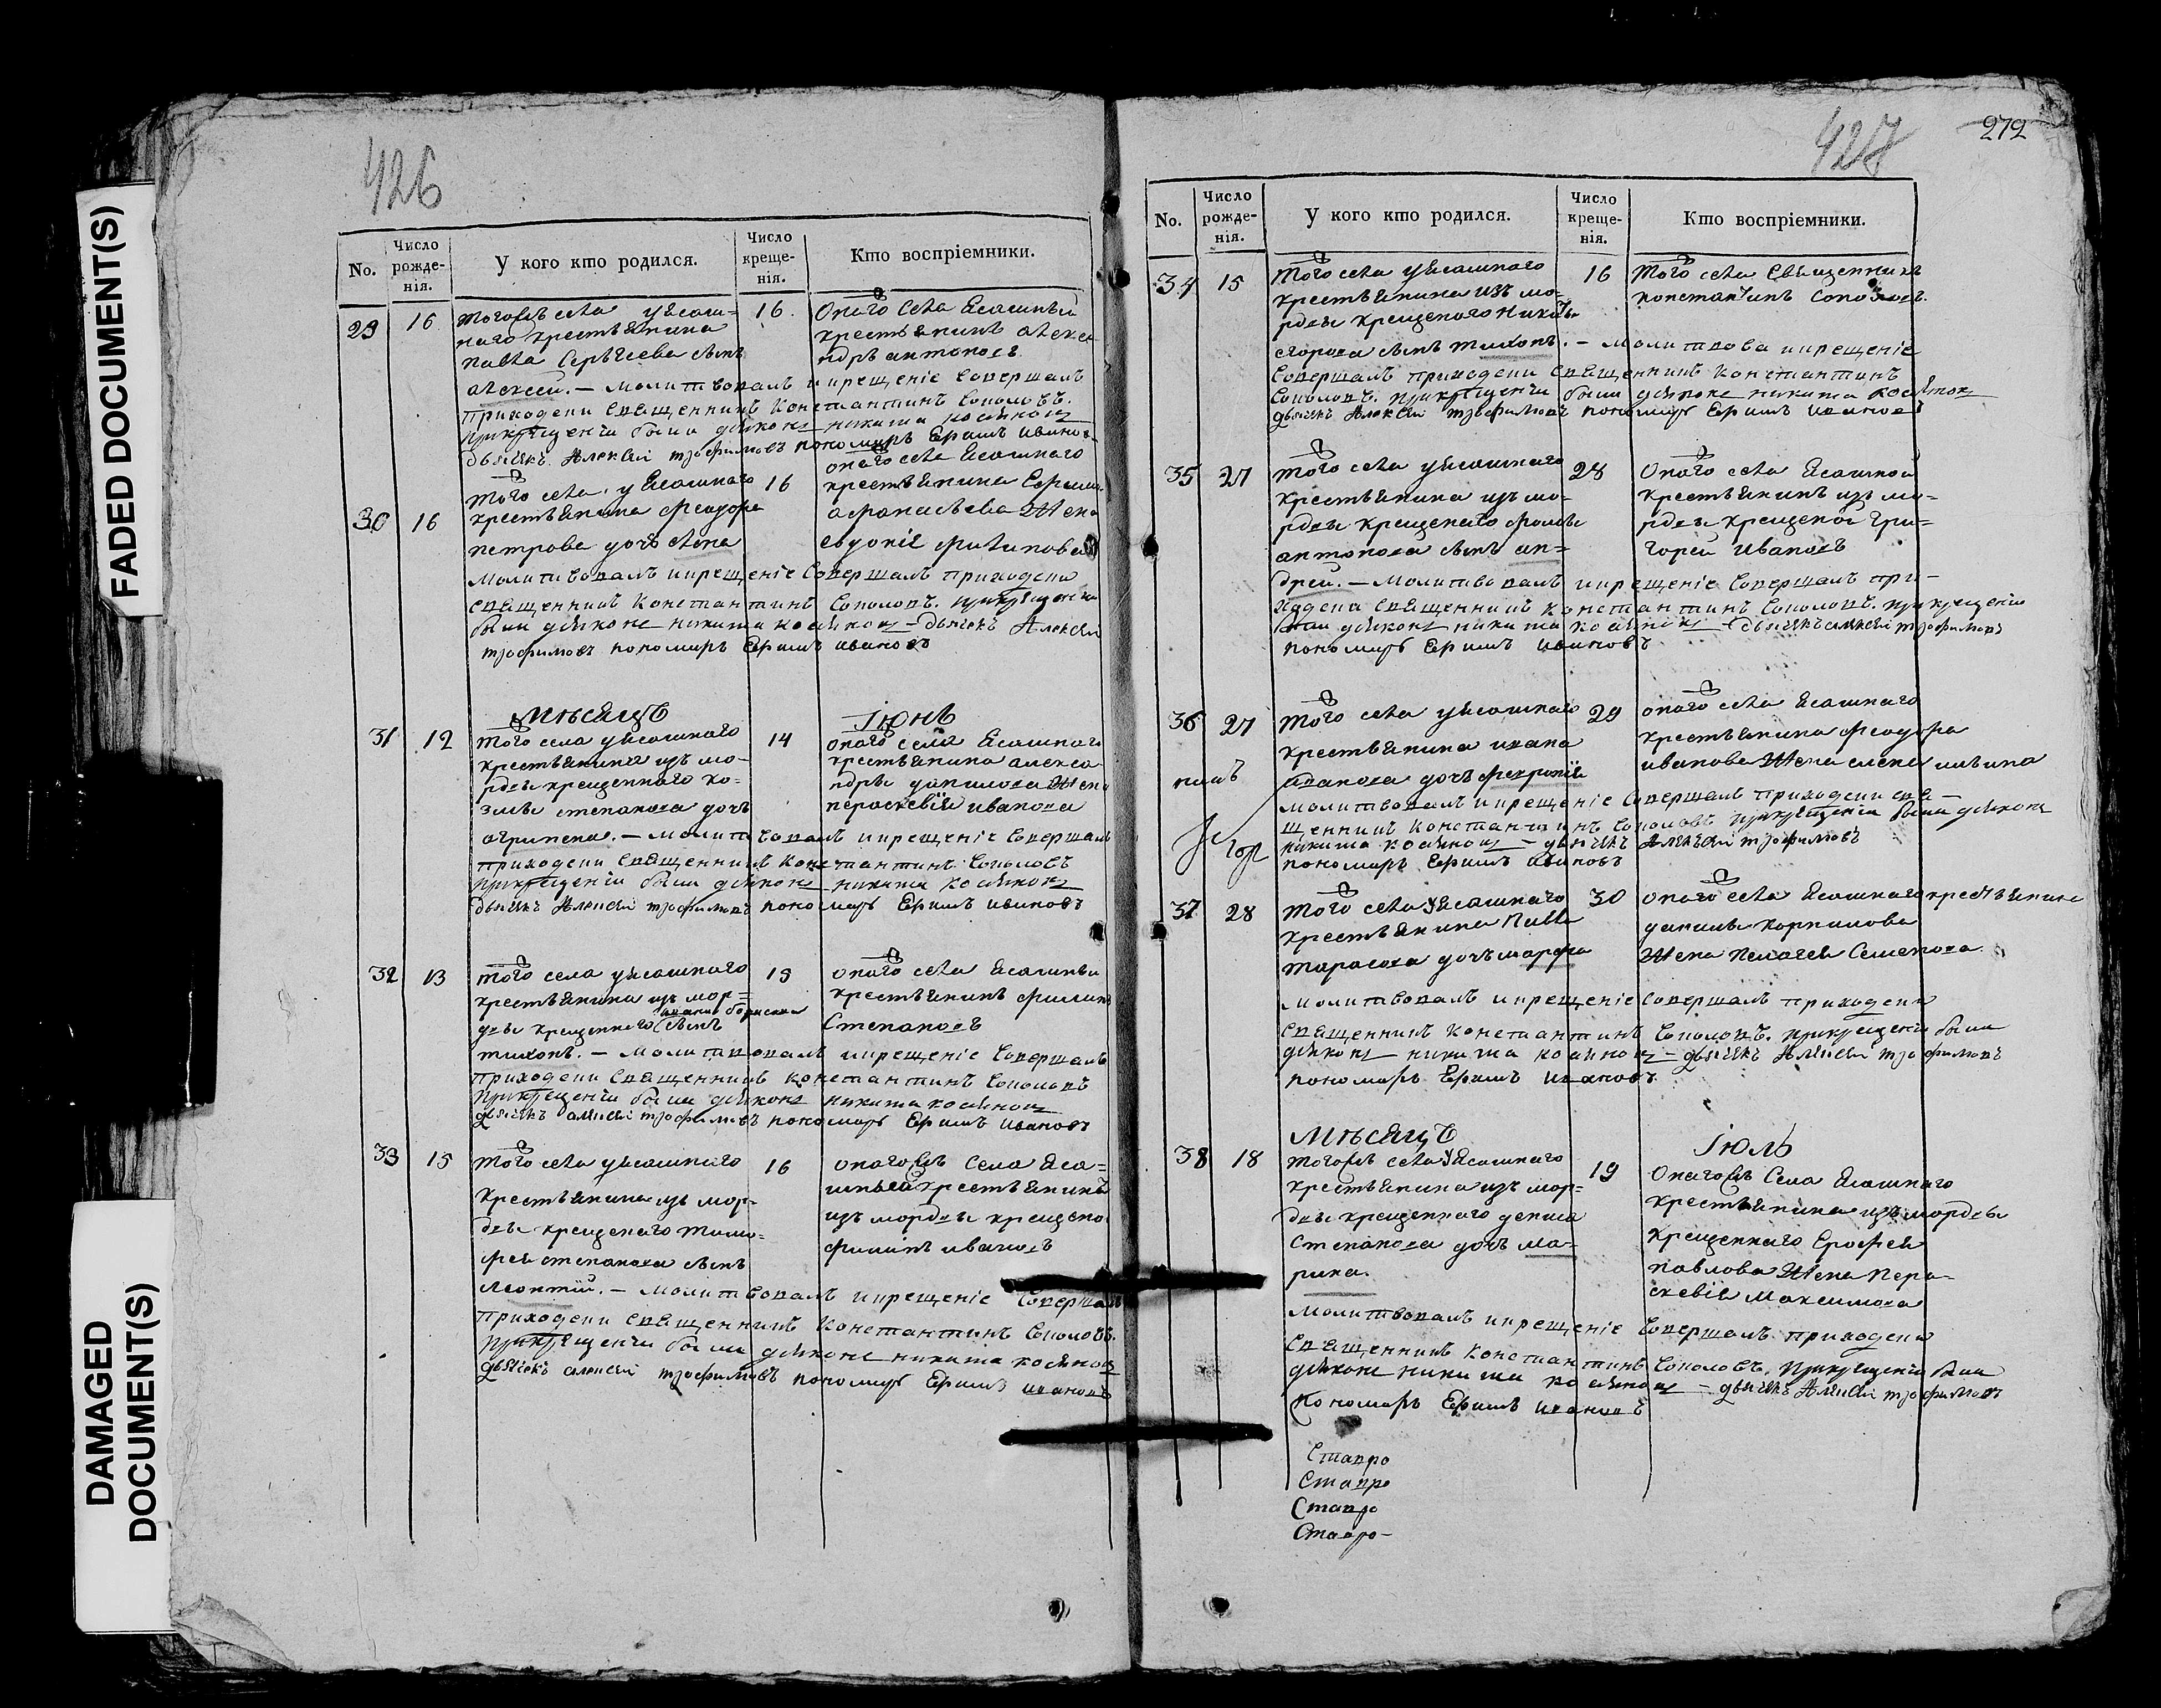 FADED DOCUMENT(S)
DAMAGED
DOCUMENT(S)
426
No.
Число рожденія.
У кого кто родился.
Число крещенія.
Кто воспріемники.
29 16
Тогожъ села у Ясаш-
наго крестьянина
Павла Сергѣева сынъ
алексей. — молитвовалъ и крещеніе Совершалъ
приходски Священникъ Константинъ Соколовъ.
при крещеніи были дьяконъ никита
дьячекъ Алексей трофимовъ пономарь Ефимъ ивановъ
16
Оного Села Ясашный
крестьянинъ алекса
ндръ антоновъ
30 16
Того села у Ясашнаго
крестьянина феодора
петрова дочь елена
молитвовалъ и крещеніе Совершалъ приходски
священникъ Константинъ Соколовъ. при крещеніи
были дьяконъ никита дьячекъ Алексей
трофимовъ пономарь Ефимъ ивановъ
16
оного села Ясашнаго
крестьянина Ефима
афанасьева жена
евдокія филипова
мѣсяцъ Іюнь
31 12
Того села у Ясашнаго
крестьянина изъ мо-
рдвы крещеннаго ко-
змы степанова дочь
агрипена. — молитвовалъ и крещеніе Совершалъ
приходски Священникъ Константинъ Соколовъ
при крещеніи были дьяконъ никита
дьячекъ Алексей трофимовъ пономарь Ефимъ ивановъ
14
оного села Ясашнаго
крестьянина алекса
ндры данилова жена
пераскевія иванова
32 13
Того села у Ясашнаго
крестьянина изъ мор=
ивана борисова
двы крещеннаго сынъ
тихонъ. — молитвовалъ и крещеніе Совершалъ
приходски Священникъ Константинъ Соколовъ
при крещеніи были дьяконъ никита
дьячекъ алексей трофимовъ пономарь Ефимъ ивановъ
оного села Ясашный
крестьянинъ филипъ
Степановъ
33 15
Того села у Ясашнаго
крестьянина изъ мор-
двы крещенаго тимо=
фея степанова сынъ
леонтій. — молитвовалъ и крещеніе Совершалъ
приходски священникъ Константинъ Соколовъ.
при крещеніи были дьяконъ никита
дьячекъ алексей трофимовъ пономарь Ефимъ ивановъ
16
оногожъ Села Яса=
шный крестьянинъ
изъ мордвы крещено
филипъ ивановъ
427
272
No.
Число рожденія.
У кого кто родился.
Число крещенія.
Кто воспріемники.
34 15
Того села у Ясашнаго
крестьянина изъ мо-
рдвы крещенаго Никиты
егорова сынъ тихонъ. — молитвова и крещеніе
Совершалъ приходски Священникъ Константинъ
Соколовъ. при крещеніи были дьяконъ никита
дьячекъ Алексей трофимовъ пономарь Ефимъ ивановъ
16
Того села Священникъ
константинъ Соколовъ.
35 27
Того села у Ясашнаго
крестьянина изъ мо-
рдвы крещенаго фомы
антонова сынъ ан=
дрей. — молитвовалъ и крещеніе Совершалъ при-
ходски Священникъ Константинъ Соколовъ. при крещеніи
были дьяконъ никита дьячекъ алексей трофимовъ
пономарь Ефимъ ивановъ
28
Оного села Ясашной
крестьянинъ изъ мо-
рдвы крещеной Гри=
горей Ивановъ
36 27
Того села у Ясашнаго
крестьянина ивана
иванова дочь феврония
молитвовалъ и крещеніе Совершалъ приходски свя-
щенникъ Константинъ Соколовъ при крещеніи были дьяконъ
никита дьячекъ Алексей трофимовъ
пономарь Ефимъ ивановъ
29
оного села Ясашнаго
крестьянина феодора
иванова жена елена ильина
37 28
Того села у Ясашнаго
крестьянина Павла
тарасова дочь марфа
молитвовалъ и крещеніе Совершалъ приходски
священникъ Константинъ Соколовъ. при крещеніи были
дьяконъ никита дьячекъ Алексей трофимовъ
пономарь Ефимъ ивановъ
30
оного села Ясашнаго крестьянина
данилы корнилова
жена Пелагея Семенова
Мѣсяцъ Іюль
38 18
Тогожъ села у Ясашнаго
крестьянина изъ мор=
двы крещеннаго дениса
Степанова дочь ма=
рина.
молитвовалъ и крещеніе Совершалъ приходски
Священникъ Константинъ Соколовъ. при крещеніи были
дьяконъ никита дьячекъ Алексей трофимовъ
пономарь Ефимъ ивановъ
19
Оногожъ Села Ясашнаго
крестьянина изъ мордвы
крещеннаго Ерофея
павлова жена пера-
скевія максимова
Ставро
Ставро
Ставро
Ставро-